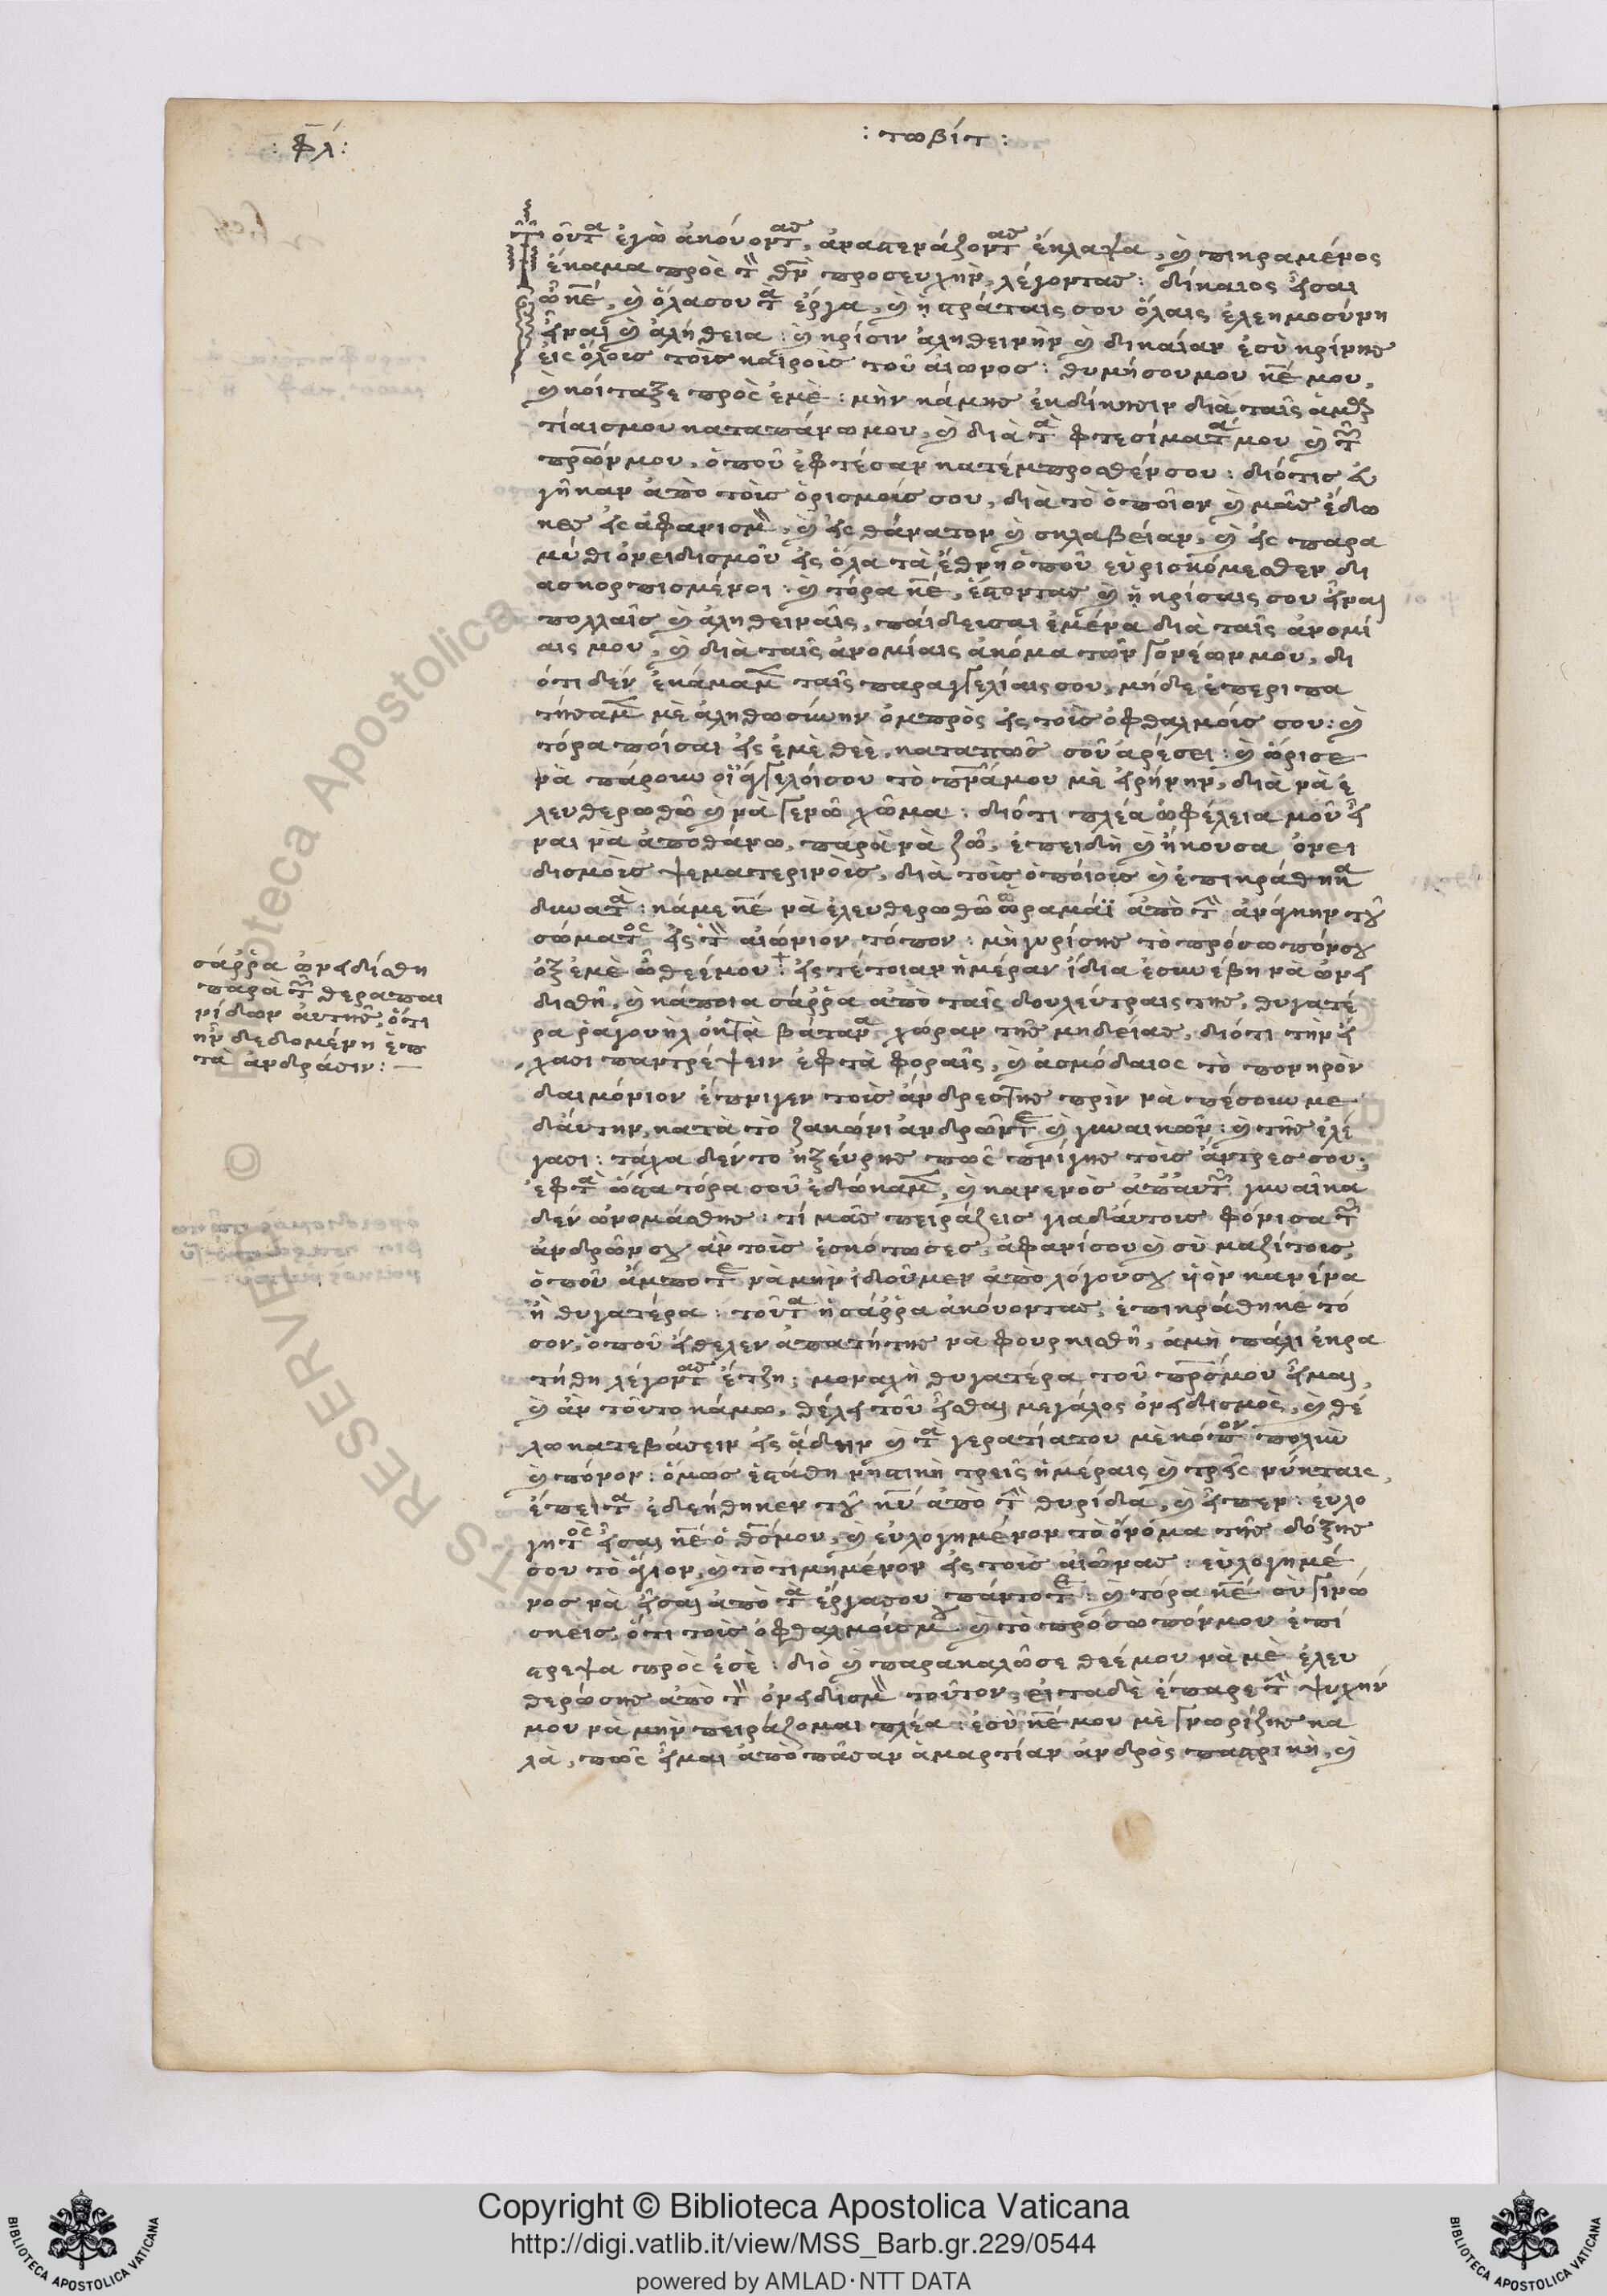 : φλ :
: τωβίτ :
Τοῦτα ἐγὼ ἀκούοντας, ἀναστενάζοντας ἔκλαψα, καὶ πικραμένος
ἔκαμα πρὸς τὸν θν προσευχὴν, λέγοντας: δίκαιος εἶσαι
ὦ κε, καὶ ὅλα σου τὰ ἔργα, καὶ ἡ στράταις σου ὅλαις ἐλεημοσύνη
εἶναι καὶ ἀλήθεια: καὶ κρίσιν ἀληθεινὴν καὶ δικαίαν ἐσὺ κρίνης
εἰς ὅλοις τοὶς καιροὶς τοῦ αἰωνος: θυμήσου μου κε μου,
καὶ κοίταξε πρὸς ἐμὲ: μὴν κάμης ἐκδίκησιν διὰ ταῖς ἁμαρ
τίαις μου καταπάνω μου, καὶ διὰ τὰ φτεσίματά μου καὶ τῶν
πρων μου, ὁποῦ ἐφτέσαν κατέμπροσθέν σου: διότις εὐ
γῆκαν ἀπὸ τοὶς ὁρισμοίς σου, διὰ τὸ ὁποῖον καὶ μᾶς ἔδω
κες εἰς ἀφανισμὸν, καὶ εἰς θάνατον καὶ σκλαβείαν, καὶ εἰς παρα
μύθι ὀνειδισμοῦ εἰς ὅλα τὰ ἔθνη ὁποῦ εὑρισκόμεσθεν δι
ασκορπισμένοι: καὶ τόρα κε, ἔστοντας καὶ ἡ κρίσαις σου εἶναι
πολλαῖς καὶ ἀληθειναῖς, παίδεισαι ἐμένα διὰ ταῖς ἀνομί
αις μου, καὶ διὰ ταῖς ἀνομίαις ἀκόμα τῶν γονέων μου, δι
ότι δὲν ἐκάμαμεν ταῖς παραγγελίαις σου, μήδε ἐπερι πα
τήσαμεν μὲ ἀληθωσύνην ὀμπρὸς εἰς τοὶς ὀφθαλμοίς σου: καὶ
τόρα ποίσαι εἰς ἐμὲ θεὲ, καταπῶς σοῦ ἀρέσει: καὶ ὥρισε
νὰ πάρουν οἱ ἀγγελοί σου τὸ πνα μου μὲ εἰρήνην, διὰ νὰ ἐ
λευθερωθῶ καὶ νὰ γενῶ χῶμα: διότι πλέα ὠφέλεια μοῦ εἶ
ναι νὰ ἀποθάνω, παρὰ νὰ ζῶ, ἐπειδὴ καὶ ἤκουσα ὀνει
δισμοὶς ψεματερινοὶς, διὰ τοὶς ὁποίοις καὶ ἐπικράθηκα
δυνατὰ: κάμε κε νὰ ἐλευθερωθῶ ὡραμάϊ ἀπὸ τὴν ἀνάγκην τοῦ
σώματος εἰς τὸν αἰώνιον τόπον: μὴ γυρίσης τὸ πρόσωπόν σου
ὀξ ἐμὲ ὦ θεέ μου: + εἰς τέτοιαν ἡμέραν ἴδια ἐσυνέβη νὰ ὠνει
δισθῆ, καὶ κάποια σάρρα ἀπὸ ταῖς δουλεύτραις της, θυγατέ
ρα ραγουὴλ ὀκτὰ βάτανα χώραν τῆς μηδείας, διότι τὴν εἴ
χασι παντρέψειν ἐφτὰ φοραῖς, καὶ ἀσμόδαιος τὸ πονηρὸν
δαιμόνιον ἔπνιγεν τοὶς ἄνδρες της πρὶν νὰ πέσουν με
δάυτην, κατὰ τὸ ζακώνι ἀνδρῶν τε καὶ γυναικῶν: καὶ τῆς ἐλέ
γασι: τάχα δέν το ἠξεύρης πῶς πνίγης τοὶς ἄντρες σου;
ἐφτὰ ὥστα τόρα σοῦ ἐδώκαμεν, καὶ κανενὸς ἀπ αὐτῶν γυναῖκα
δεν ὠνομάσθης: τί μᾶς πειράζεις γιαδάυτοις φόνισα τῶν
ἀνδρῶν σου ἀν τοὶς ἐσκότωσες, ἀφανίσου καὶ σὺ μαζίτοις,
ὁποῦ ἄμποτε νὰ μὴν ἰδοῦμεν ἀπὸ λόγου σου ἡὸν κανένα
ἢ θυγατέρα: τοῦτα ἡ σάρρα ἀκούοντας, ἐπικράθηκε τό
σον, ὁποῦ ἤθελεν ἀπατήτης νὰ φουρκισθῆ, ἀμὴ πάλι ἐκρα
τήθη λέγοντας ἔτζη: μοναχὴ θυγατέρα τοῦ πρς μου εἶμαι,
καὶ ἀν τοῦτο κάμω, θέλει τοῦ εἶσθαι μεγάλος ὀνειδισμὸς, καὶ θέ
λω κατεβάσειν εἰς ἄδην καὶ τὰ γερατίατου μὲ κόπον πολὺν
καὶ πόνον: ὅμως ἐστάθη νηστικὴ τρεῖς ἡμέραις καὶ τρεῖς νύκταις,
ἔπειτα ἐδεήθηκεν τοῦ κυ ἀπὸ τὴν θυρίδα, καὶ εἶπεν: εὐλο
γητὸς εἶσαι κε ὁ θς μου, καὶ εὐλογημένον τὸ ὄνομα τῆς δόξης
σου τὸ ἅγιον, καὶ τὸ τιμημένον εἰς τοὶς αἰῶνας: εὐλογημέ
νος νὰ εἶσαι ἀπὸ τὰ ἔργασου πάντοτε: καὶ τόρα κε σὺ γινώ
σκεις, ὅτι τοὶς ὀφθαλμοίς μου καὶ τὸ πρόσωπόν μου ἐπί
στρεψα πρὸς ἐσὲ: διὸ καὶ παρακαλῶσε θεέ μου νὰ μὲ ἐλευ
θερώσης ἀπὸ τὸν ὀνειδισμὸν τοῦτον, εἰταδὲ ἔπαρε τὴν ψυχήν
μου νὰ μὴν πειράζομαι πλέα: ἐσὺ κε μου μὲ γνωρίζης κα
λὰ, πῶς εἶμαι ἀπὸ πᾶσαν ἁμαρτίαν ἀνδρὸς παστρικὴ, καὶ
σάρρα ὠνειδίσθη
παρὰ τῶν θεραπαι
νίδων ἀυτῆς, ὅτι
ἦν δεδομένη ἑπ
τὰ ἀνδράσιν: —
Copyright © Biblioteca Apostolica Vaticana
http://digi.vatlib.it/view/MSS_Barb.gr.229/0544
powered by AMLAD·NTT DATA
BIBLIOTECA APOSTOLICA VATICANA
BIBLIOTECA APOSTOLICA VATICANA